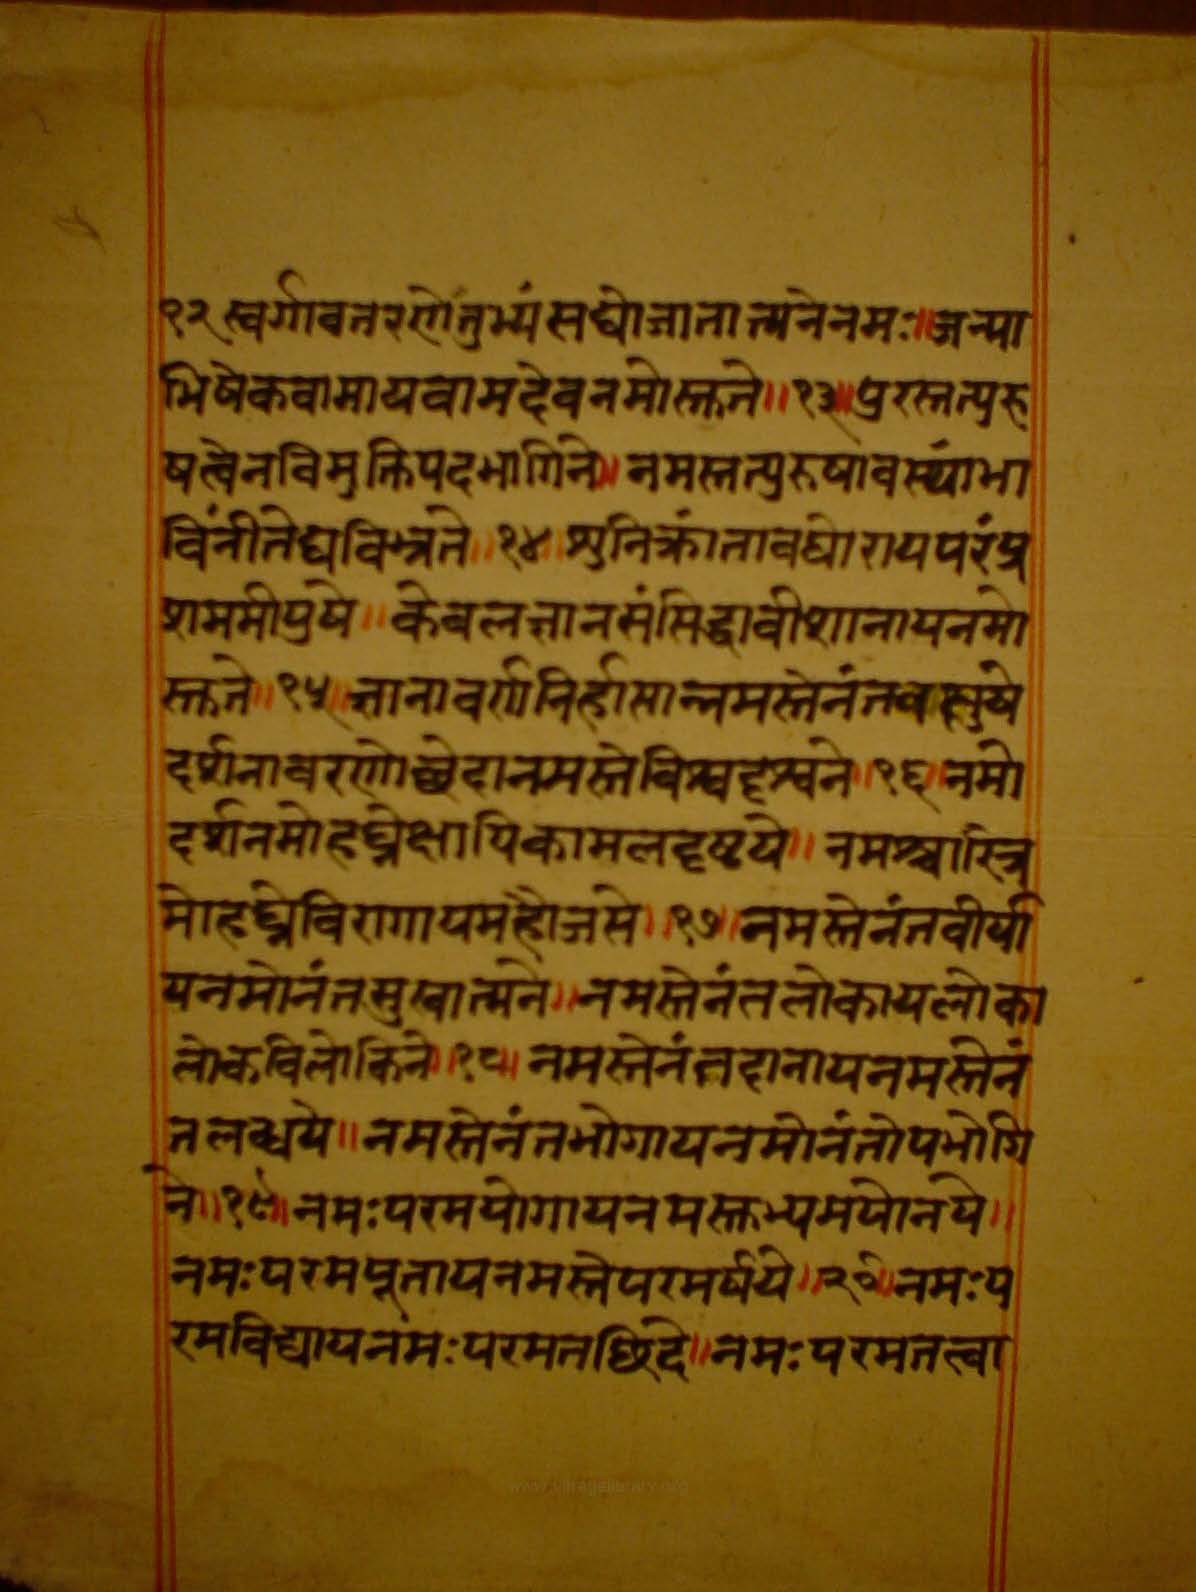 १२ स्वर्गावतरणेतुभ्यं सद्योजातात्मनेनमः॥जन्मा
भिषेकवामायवामदेवनमोस्तुते॥१३॥पुरस्तत्पुरु
षत्वेनविमुक्तिपदभागिने॥नमस्तत्पुरुषावस्थांभा
विनीतेद्यविभ्रते॥१४॥सुनिक्रांतावघोरायपरंप्र
शममीपुषे॥केवलज्ञानसंसिद्धावीशानायनमो
स्तुते॥१५॥ज्ञानावर्णनिर्ह्रासान्नमस्तेनंतचक्षुषे
दर्शनावरणोछेदानमस्तेविश्वदृश्वने॥१६॥नमो
दर्शनमोहघ्नेक्षायिकामलदृष्टये॥नमश्चारित्र
मोहघ्नेविरागायमहौजसे॥१७॥नमस्तेनंतवीर्या
यनमोनंतसुखात्मने॥नमस्तेनंतलोकायलोका
लोकविलोकिने॥१८॥नमस्तेनंतदानायनमस्तेनं
तलब्धये॥नमस्तेनंतभोगायनमोनंतोपभोगि
ने॥१९॥नमःपरमयोगायनमस्तुभ्यमयोनये॥
नमःपरमपूतायनमस्तेपरमर्षये॥२०॥नमःप
रमविद्यायनमःपरमतछिदे॥नमःपरमतत्वा
www.jainagelibrary.org